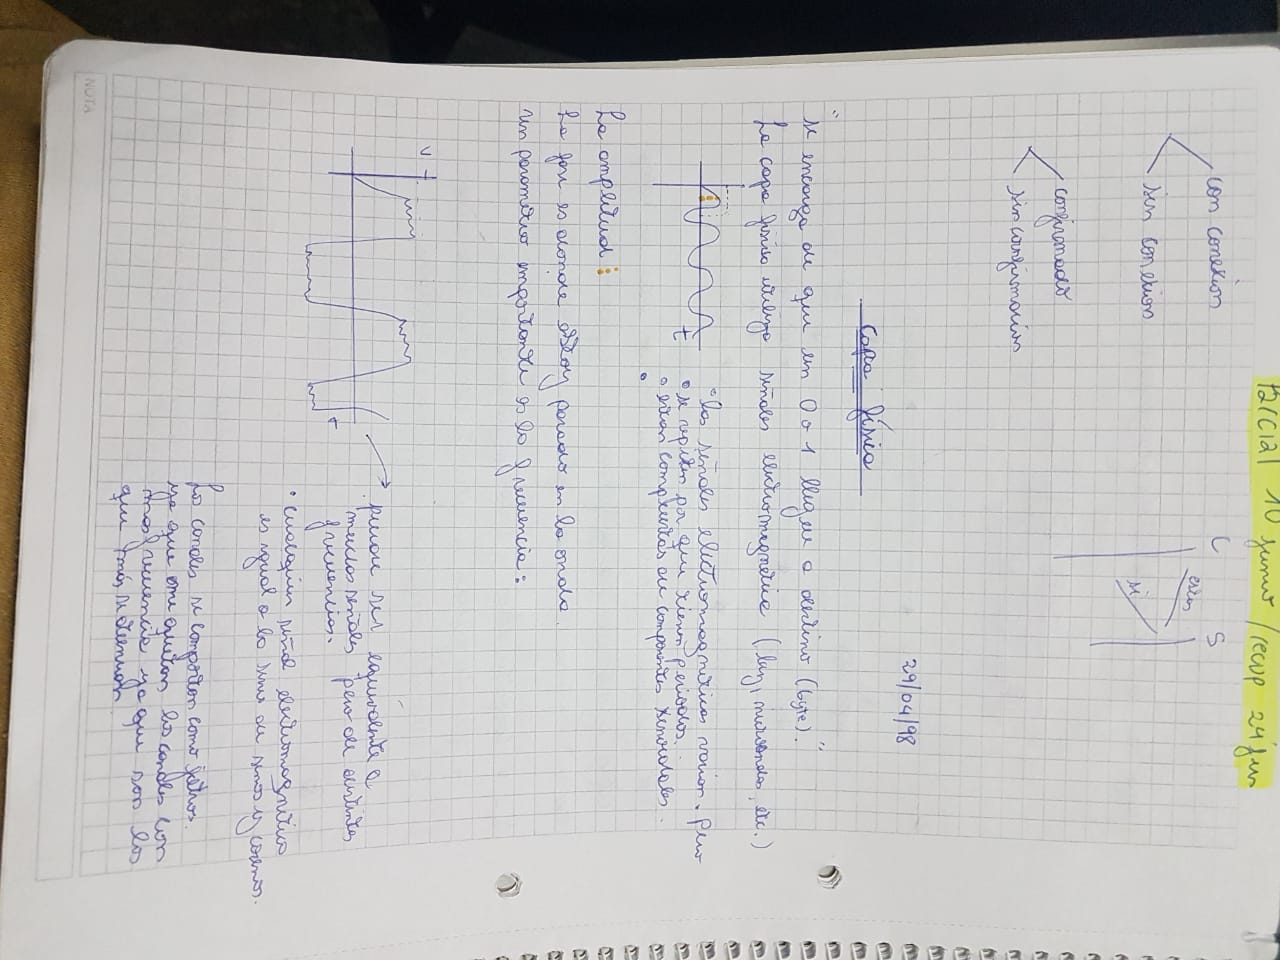 10 junio / recup 24 jun
con conexion
sin conexion
C S
estas
si
confirmado
sin confirmacion
29/04/98
Capa física
"se encarga de que un 0 o 1 llegue a destino (byte)."
La capa fisica utiliza señales electromagnetica (luz, microondas, etc.)
t
las señales electromagneticas varian. pero
se repiten por que tienen periodos.
estan compuestas de componentes senoidales.
La amplitud :
La fase es donde estoy parado en la onda.
un parametro importante es la frecuencia:
V
t
puede ser equivalente a
muchas señales pero de distintas
frecuencias.
• cualquier señal electromagnetica
es igual a la suma de senos y cosenos.
Los canales se comportan como filtros.
ya que quitan los canales con
mas frecuencia ya que son los
que más se atenuan.
NOTA